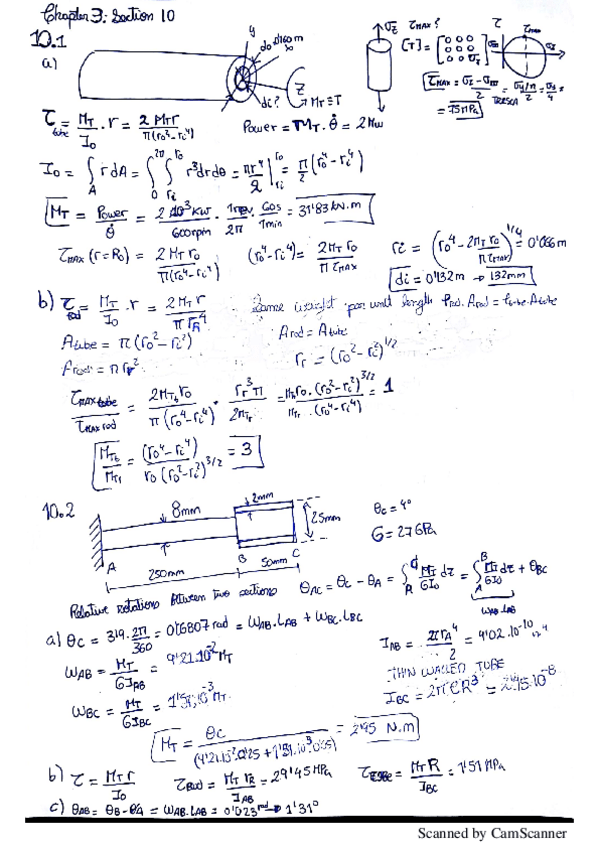 Chapter 3: Section 10
10.1
a)
y
z
dc?
M_T ≡ T
σ_z
τ_MAX?
τ
τ_max
τ_MAX = (σ_I - σ_III)/2 = (σ_y/n)/2 = σ_y/4 =
TRESCA
= 75 MPa
τ_tube = M_T/I_0 · r = 2 M_T r/π(r_0⁴-r_i⁴)
Power = M_T · θ̇ = 2 Mw
I_0 = ∫_A r dA = ∫_0^2π ∫_ri^r0 r³drdθ = πr⁴/2 |_ri^r0 = π/2 (r_0⁴-r_i⁴)
M_T = Power/θ̇ = 2·10³ KW/600rpm · 1rev/2π · 60s/1min = 31'83 kN.m
τ_MAX (r=R_0) = 2 M_T r_0/π(r_0⁴-r_i⁴)
(r_0⁴-r_i⁴) = 2M_T r_0/π τ_MAX
r_i = (r_0⁴ - 2M_T r_0/π τ_MAX)^1/4 = 0'066m
di = 0'132m → 132mm
b) τ_rod = M_T/I_0 · r = 2 M_T r/π r_r⁴
Same weight per unit length ρ_rod. A_rod = ρ_tube. A_tube
A_tube = π(r_0²-r_i²)
A_rod = A_tube
A_rod = π r_r²
r_r = (r_0²-r_i²)^1/2
τ_MAX tube/τ_MAX rod = 2M_Tt r_0/π(r_0⁴-r_i⁴) · r_r³ π/2M_Tr = M_Tt r_0.(r_0²-r_i²)^3/2/M_Tr.(r_0⁴-r_i⁴) = 1
M_Tt/M_Tr = (r_0⁴-r_i⁴)/r_0(r_0²-r_i²)^3/2 = 3
10.2
8mm
2mm
25mm
θ_C = 4°
G = 27 GPa
A
B
C
250mm
50mm
Relative rotations between two sections
θ_AC = θ_C - θ_A = ∫ M_T/GI_0 dz = ∫_A^B M_T/GI_0 dz + θ_BC
W_AB·L_AB
a) θ_C = 3'9·2π/360 = 0'06807 rad = W_AB.L_AB + W_BC.L_BC
I_AB = πr_A⁴/2 = 4'02.10⁻¹⁰ m⁴
W_AB = M_T/GI_AB = 9'21.10⁻² M_T
THIN WALLED TUBE
I_BC = 2πeR³ =
W_BC = M_T/GI_BC = 1'51.10⁻³ M_T
M_T = θ_C/ = 2'95 N.m
b) τ = M_T r/I_0
τ_Rod = M_T r_A/I_AB = 29'45 MPa
τ_TUBE = M_T R/I_BC = 1'51 MPa
c) θ_AB = θ_B - θ_A = W_AB.L_AB = 0'023 rad → 1'31°
Scanned by CamScanner